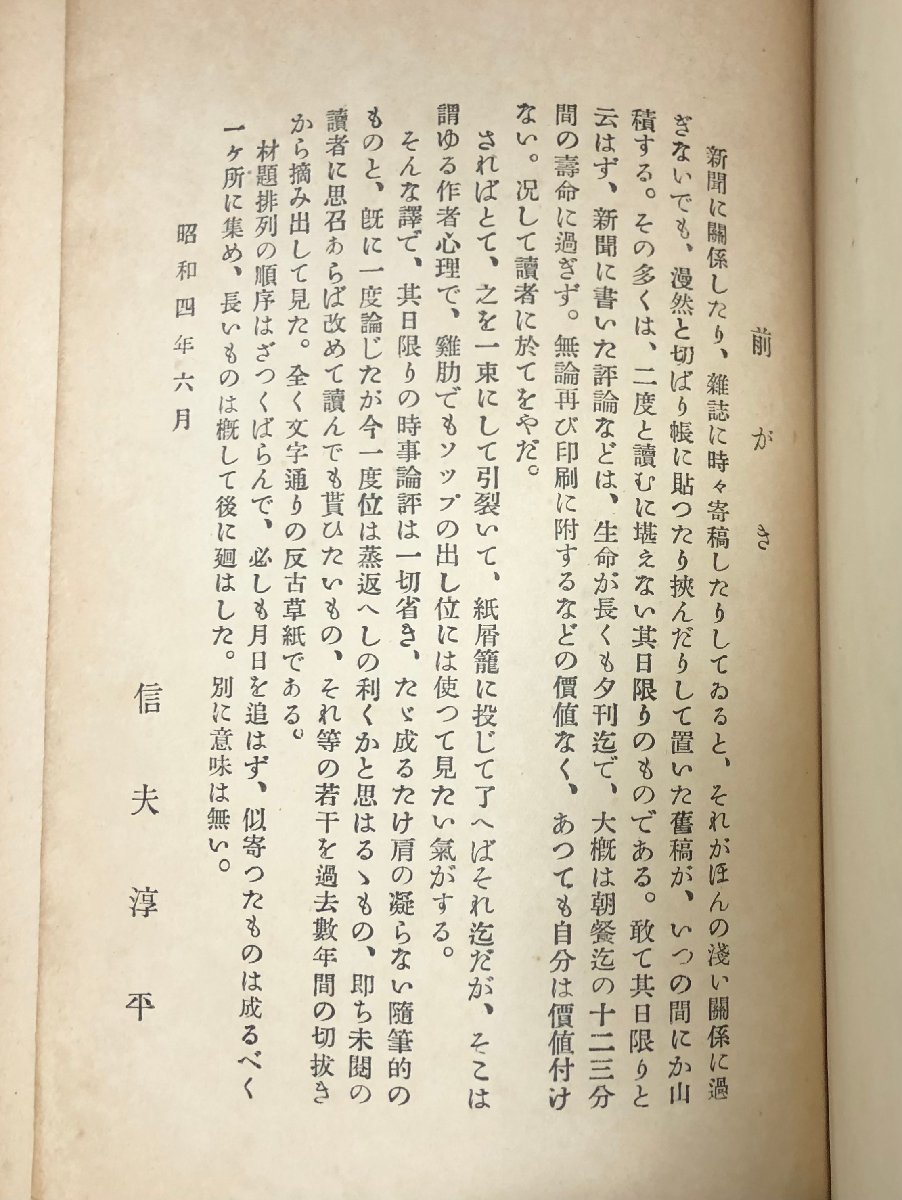 前がき
新聞に關係したり、雜誌に時々寄稿したりしてゐると、それがほんの淺い關係に過
ぎないでも、漫然と切ばり帳に貼つたり挾んだりして置いた舊稿が、いつの間にか山
積する。その多くは、二度と讀むに堪えない其日限りのものである。敢て其日限りと
云はず、新聞に書いた評論などは、生命が長くも夕刊迄で、大槪は朝餐迄の十二三分
間の壽命に過ぎず。無論再び印刷に附するなどの價値なく、あつても自分は價値付け
ない。况して讀者に於てをやだ。
さればとて、之を一束にして引裂いて、紙屑籠に投じて了へばそれ迄だが、そこは
謂ゆる作者心理で、雞肋でもソップの出し位には使つて見たい氣がする。
そんな譯で、其日限りの時事論評は一切省き、たゞ成るたけ肩の凝らない隨筆的の
ものと、旣に一度論じたが今一度位は蒸返へしの利くかと思はるゝもの、卽ち未閲の
讀者に思召あらば改めて讀んでも貰ひたいもの、それ等の若干を過去數年間の切拔き
から摘み出して見た。全く文字通りの反古草紙である。
材題排列の順序はざつくばらんで、必しも月日を追はず、似寄つたものは成るべく
一ヶ所に集め、長いものは槪して後に廻はした。別に意味は無い。
昭和四年六月
信夫淳平